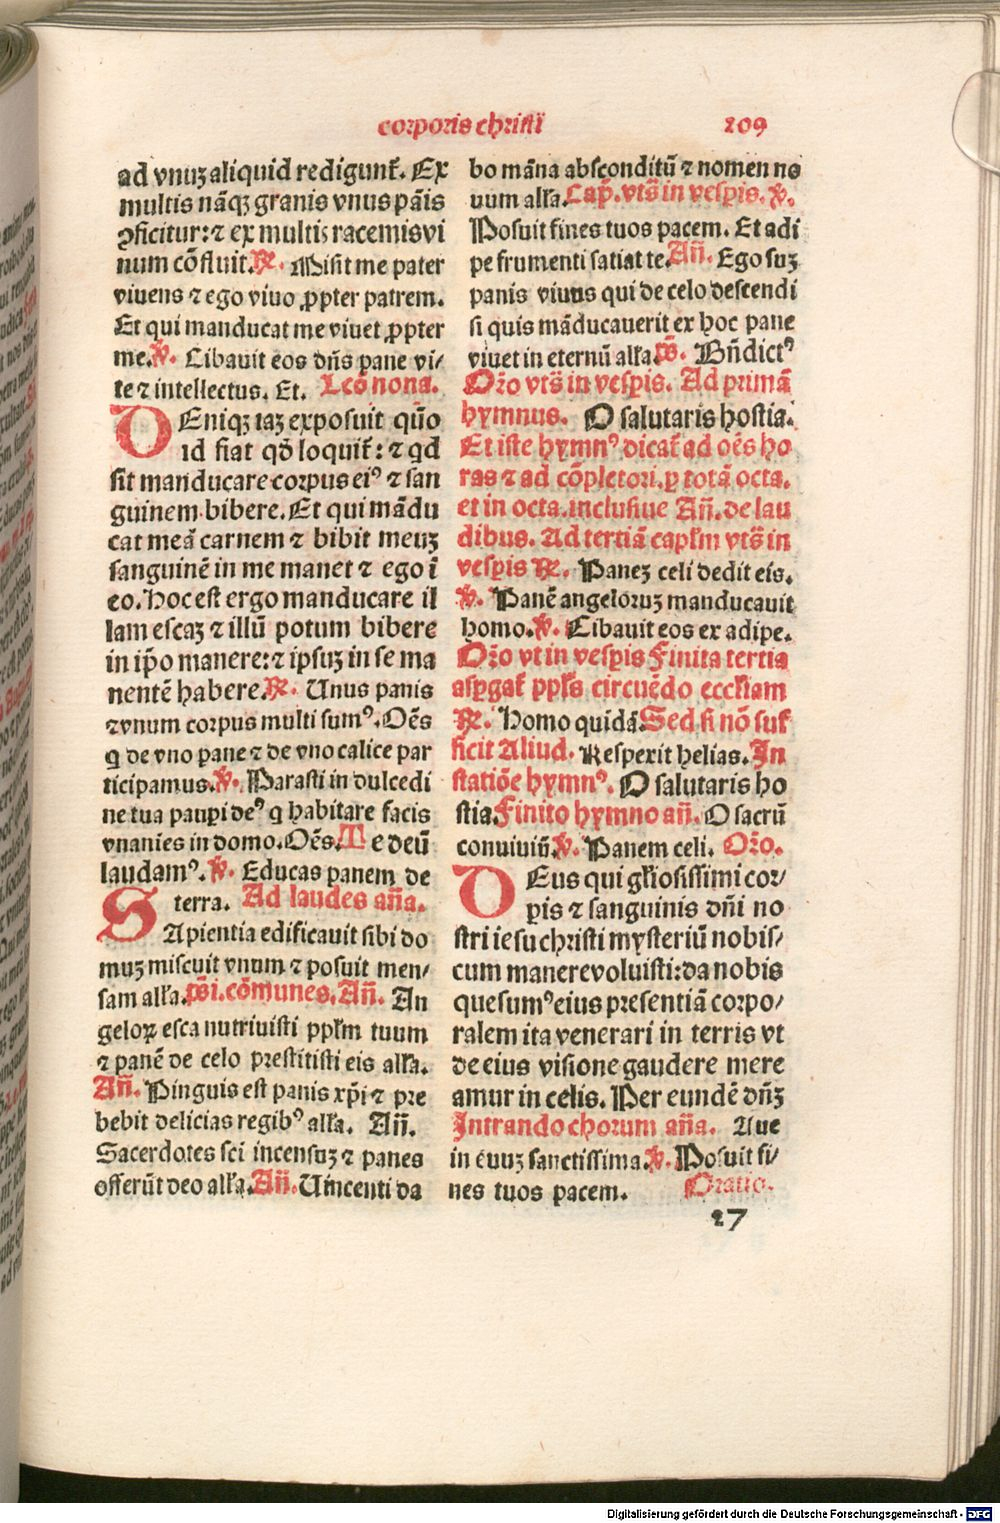 corporis christi 209
ad vnuꝫ aliquid redigunt᷑. Ex
multis nãqꝫ granis vnus pãis
ꝯficitur: ⁊ ex multis racemis vi
num cõfluit. ℟. Misit me pater
viuens ⁊ ego viuo ꝓpter patrem.
Et qui manducat me viuet ꝓpter
me. ℣. Cibauit eos dñs pane vi⸗
te ⁊ intellectus. Et. Lcõ nona.
DEniqꝫ iaꝫ exposuit quõ
id fiat qđ loquit᷑: ⁊ qđ
sit manducare corpus eiꝰ ⁊ san
guinem bibere. Et qui mãdu
cat meã carnem ⁊ bibit meuꝫ
sanguinẽ in me manet ⁊ ego ĩ
eo. Hoc est ergo manducare il
lam escaꝫ ⁊ illũ potum bibere
in ip̃o manere: ⁊ ipsuꝫ in se ma
nentẽ habere. ℟. Unus panis
⁊ vnum corpus multi sumꝰ. Oẽs
q̃ de vno pane ⁊ de vno calice par
ticipamus. ℣. Parasti in dulcedi
ne tua paupi deꝰ q̃ habitare facis
vnanies in domo. Oẽs. Te deũ
laudamꝰ. ℣. Educas panem de
terra. Ad laudes añа.
SApientia edificauit sibi do
muꝫ miscuit vnum ⁊ posuit men⸗
sam alľa. ps̃i. cõmunes. Añ. An
geloꝝ esca nutriuisti ppľm tuum
⁊ panẽ de celo prestitisti eis alľa.
Añ. Pinguis est panis xp̃i ⁊ pre
bebit delicias regibꝰ alľa. Añ.
Sacerdotes sci incensuꝫ ⁊ panes
offerũt deo alľa. Añ. Uincenti da
bo mãna absconditũ ⁊ nomen no
uum alľa. Cap̃. vts̃ in vesp̃is. ℣.
Posuit fines tuos pacem. Et adi
pe frumenti satiat te. Añ. Ego suꝫ
panis viuus qui de celo descendi
si quis mãducauerit ex hoc pane
viuet in eternũ alľa. ps̃. Bñdictꝰ
Or̃o vts̃ in vesp̃is. Ad primã
hymnus. O salutaris hostia.
Et iste hymnꝰ dicat᷑ ad oẽs ho
ras ⁊ ad cõpletori. ꝑ totã octa.
et in octa. inclusiue Añ. de lau
dibus. Ad tertiã capľm vts̃ in
vesp̃is ℟. Paneꝫ celi dedit eis.
℣. Panẽ angeloruꝫ manducauit
homo. ℣. Cibauit eos ex adipe.
Or̃o vt in vesp̃is Finita tertia
asꝑgat᷑ ppľs circuẽdo eccľiam
℟. Homo quidã. Sed si nõ suf
ficit Aliud. Respexit helias. In
statiõe hymnꝰ. O salutaris ho
stia. Finito hymno añ. O sacrũ
conuiuiũ. ℣. Panem celi. Or̃o.
DEus qui gľiosissimi cor⸗
ꝑis ⁊ sanguinis dñi no
stri iesu christi mysteriũ nobis⸗
cum manere voluisti: da nobis
quesumꝰ eius presentiã corpo⸗
ralem ita venerari in terris vt
de eius visione gaudere mere
amur in celis. Per eundẽ dñꝫ
Intrando chorum aña. Aue
in euuꝫ sanctissima. ℣. Posuit fi⸗
nes tuos pacem. Oratio.
27
Digitalisierung gefördert durch die Deutsche Forschungsgemeinschaft - DFG